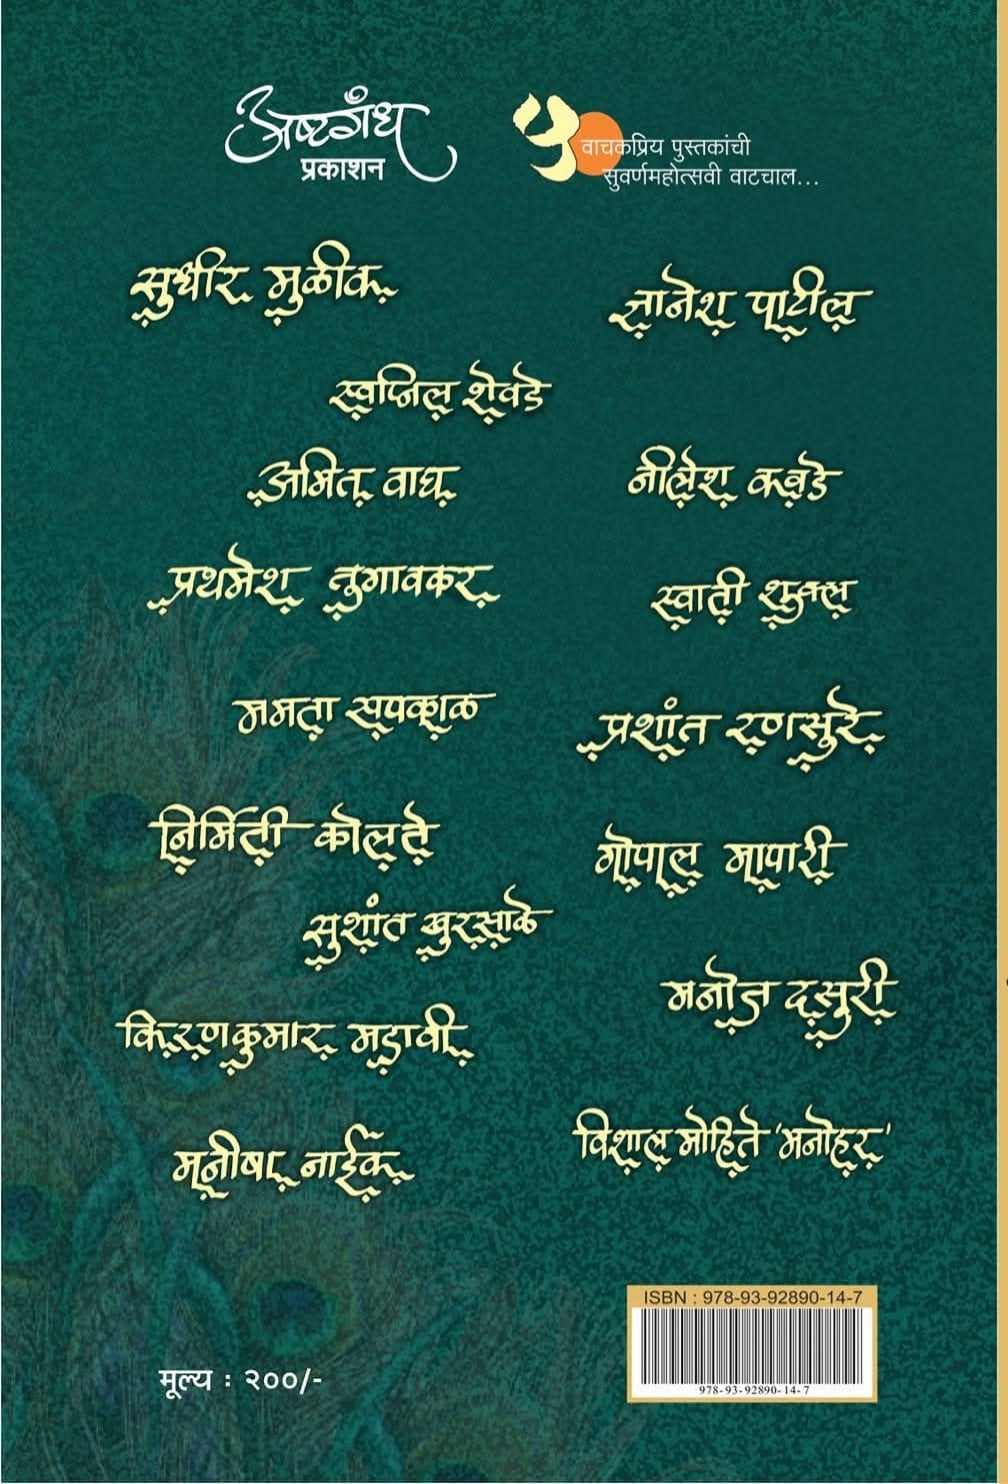 अष्टगंध
प्रकाशन
५०
वाचकप्रिय पुस्तकांची
सुवर्णमहोत्सवी वाटचाल...
सुधीर मुळीक
ज्ञानेश पाटील
स्वप्निल शेवडे
अमित वाघ
नीलेश कवडे
प्रथमेश तुगावकर
स्वाती शुक्ल
ममता सपकाळ
प्रशांत रणसुरे
निर्मिती कोलते
गोपाल मापारी
सुशांत खुरसाळे
मनोज दसुरी
किरणकुमार मडावी
विशाल मोहिते 'मनोहर'
मनीषा नाईक
ISBN : 978-93-92890-14-7
978-93-92890-14-7
मूल्य : २००/-